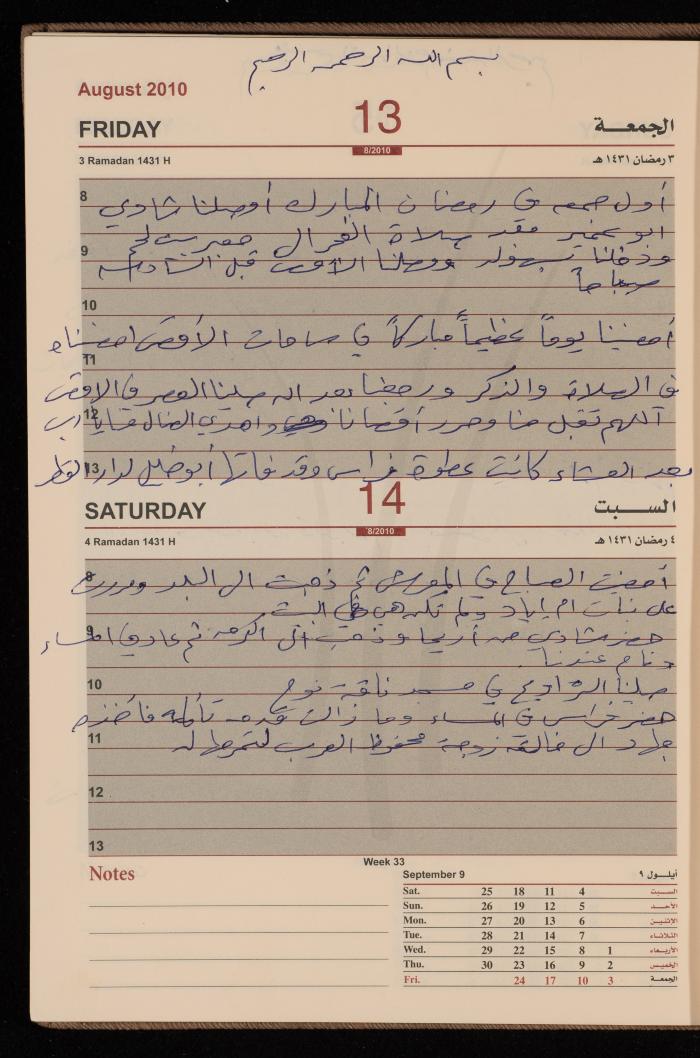 بسم الله الرحمن الرحيم
August 2010
FRIDAY
13
الجمعـــة
3 Ramadan 1431 H
8/2010
٣ رمضان ١٤٣١ هـ
8
أول جمعة في رمضان المبارك أوصلنا شادي
ابو بعد صلاة الفجر إلى
9
ودخلنا بسهولة ووصلنا الأقصى قبل السادسة
صباحاً
10
أمضينا يوماً عظيماً مباركاً في ساحات الأقصى
11
في الصلاة والذكر ورجعنا بعد ان صلينا العصر في الأقصى
12
اللهم تقبل منا وحرر أقصانا واهدي الضال
13
بعد العشاء كانت عطوة فراس وقد
SATURDAY
14
السبت
4 Ramadan 1431 H
8/2010
٤ رمضان ١٤٣١ هـ
8
أمضيت الصباح في ثم ذهبت الى البلد ومررت
على بنات ام اياد ولم تكن هي في البيت
9
حضر شادي من أريحا وذهب الى ثم عاد في المساء
ونام عندنا
10
صلينا التراويح في مسجد ناقة نوح
حضر فراس في المساء وما زالت قدمه تألمه فأخذه
11
جهاد الى خالته زوجة محفوظ العرب
12
13
Notes
Week 33
September 9
أيلـــول ٩
Sat. 25 18 11 4 السبت
Sun. 26 19 12 5 الأحد
Mon. 27 20 13 6 الاثنين
Tue. 28 21 14 7 الثلاثاء
Wed. 29 22 15 8 1 الأربعاء
Thu. 30 23 16 9 2 الخميس
Fri. 24 17 10 3 الجمعة